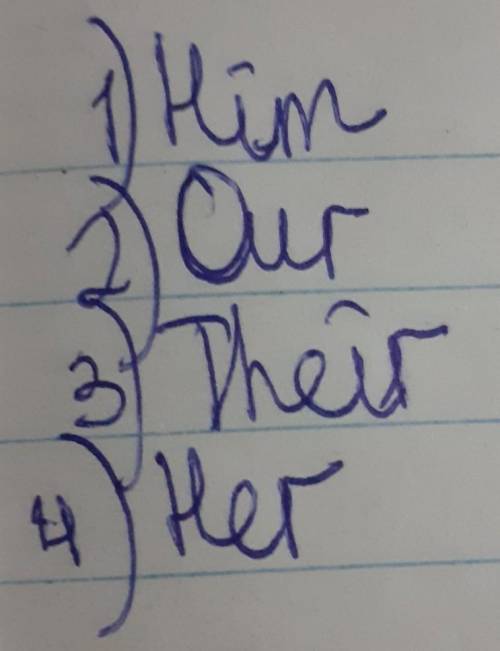 1) Him
2) Our
3) Their
4) Her